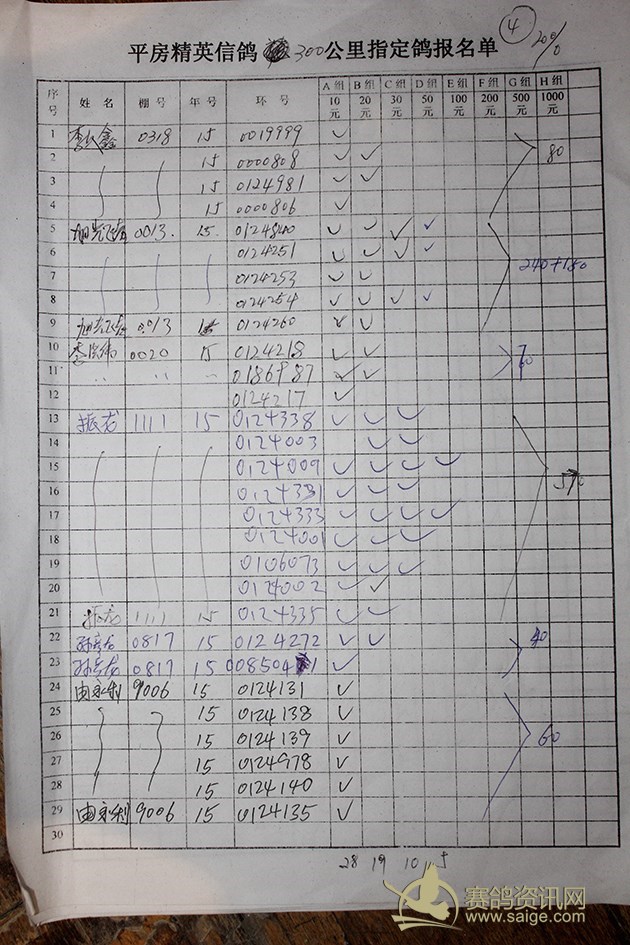 4
200/0
平房精英信鸽 300公里指定鸽报名单
序号 姓 名 棚 号 年 号 环 号 A 组 10元 B 组 20元 C 组 30元 D 组 50元 E 组 100元 F 组 200元 G 组 500元 H 组 1000元
1 0318 15 0019999 ✓
2 15 0000808 ✓ ✓ 80
3 15 0124981 ✓ ✓
4 15 0000806 ✓
5 0013. 15. ✓ ✓ ✓ ✓
6 0124251 ✓ ✓ ✓ ✓ 240+180
7 0124253 ✓ ✓
8 0124254 ✓ ✓ ✓ ✓
9 0013 15 0124260 ✓ ✓
10 0020 15 0124218 ✓ ✓
11 〃 〃 〃 0186987 ✓ ✓
12 0124217 ✓
13 振龙 1111 15 0124338 ✓ ✓ ✓
14 0124003 ✓ ✓
15 0124009 ✓ ✓ ✓ ✓
16 ✓ ✓ ✓
17 0124333 ✓ ✓ ✓ ✓
18 0124001 ✓ ✓ ✓
19 0106073 ✓ ✓ ✓
20 0124002 ✓ ✓
21 振龙 1111 15 0124335 ✓ ✓
22 0817 15 0124272 ✓ ✓
23 0817 15 ✓
24 由永利 9006 15 0124131 ✓
25 15 0124138 ✓
26 15 0124139 ✓ 60
27 15 0124978 ✓
28 15 0124140 ✓
29 由永利 9006 15 0124135 ✓
30
28 19 10 5
赛鸽资讯网
www.saige.com